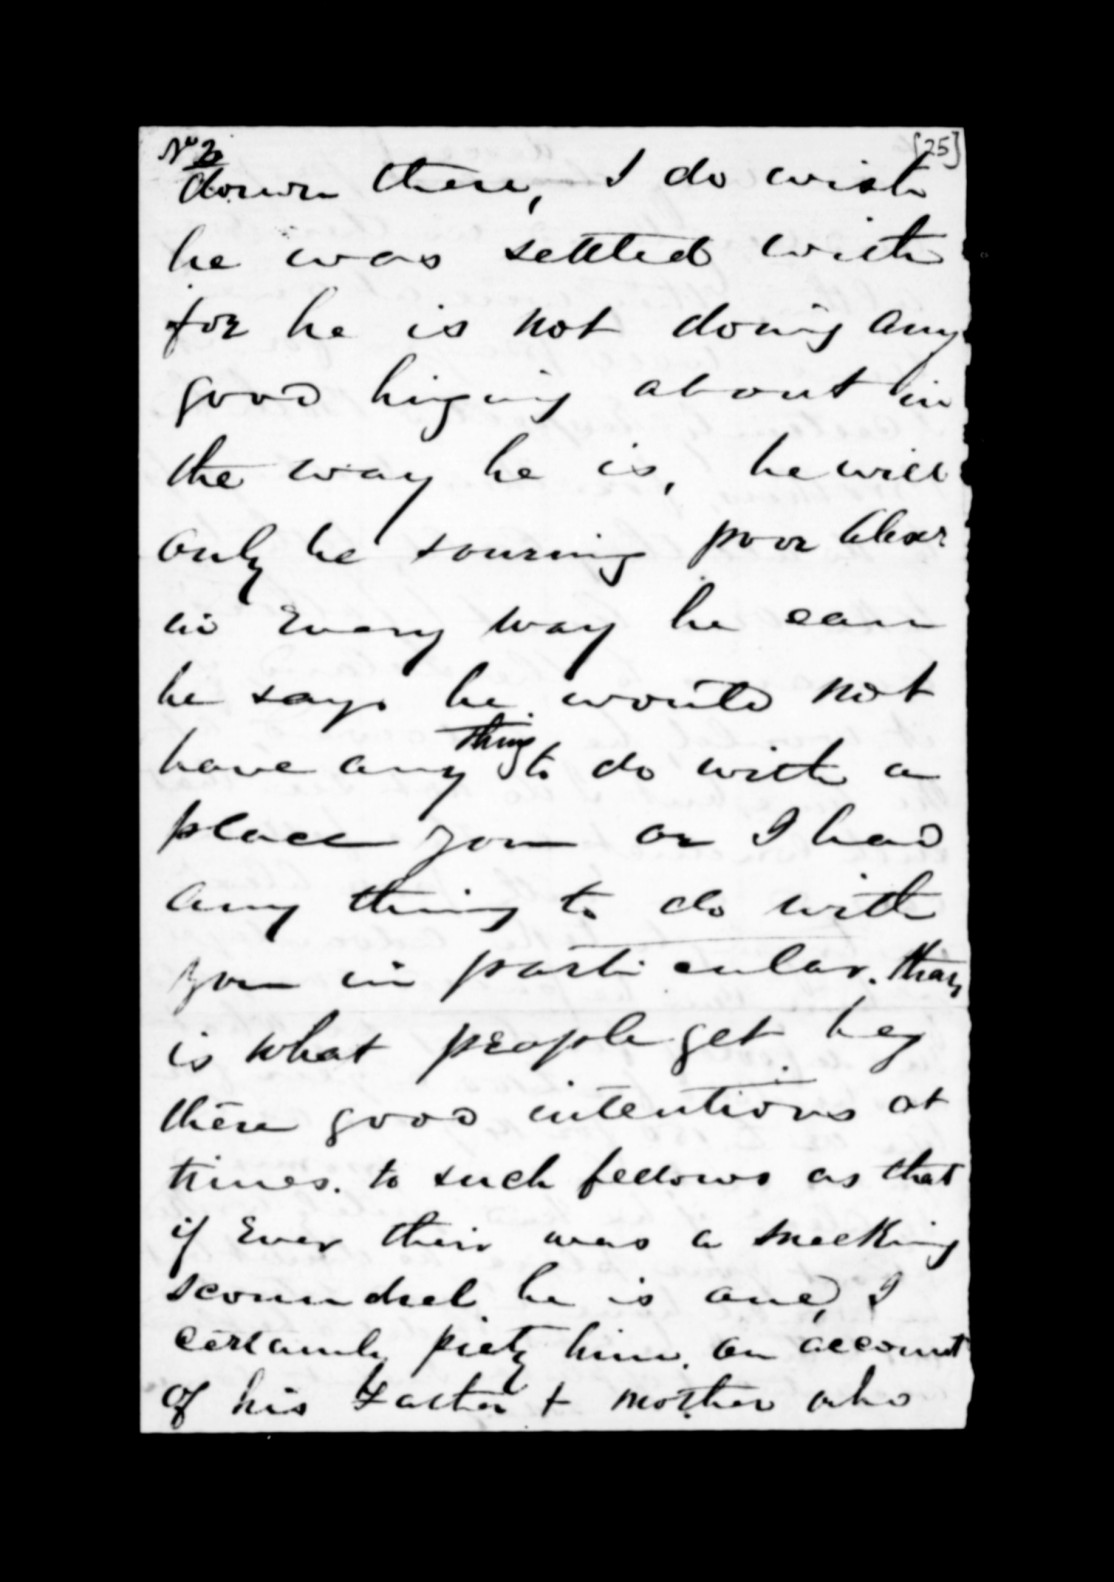 No 2 [25]
down there, I do wish
he was settled with
for he is not doing any
good higing about in
the way he is, he will
only be souring poor Alexr
in Every way he can
he says he would not
have any thing to do with a
place you or I had
any thing to do with
you in particular. that
is what people get bey
there good intentions at
times. to such fellows as that
if Ever their was a sneeking
scoundrel he is one, I
certainly piety him. on account
of his Father & Mother who